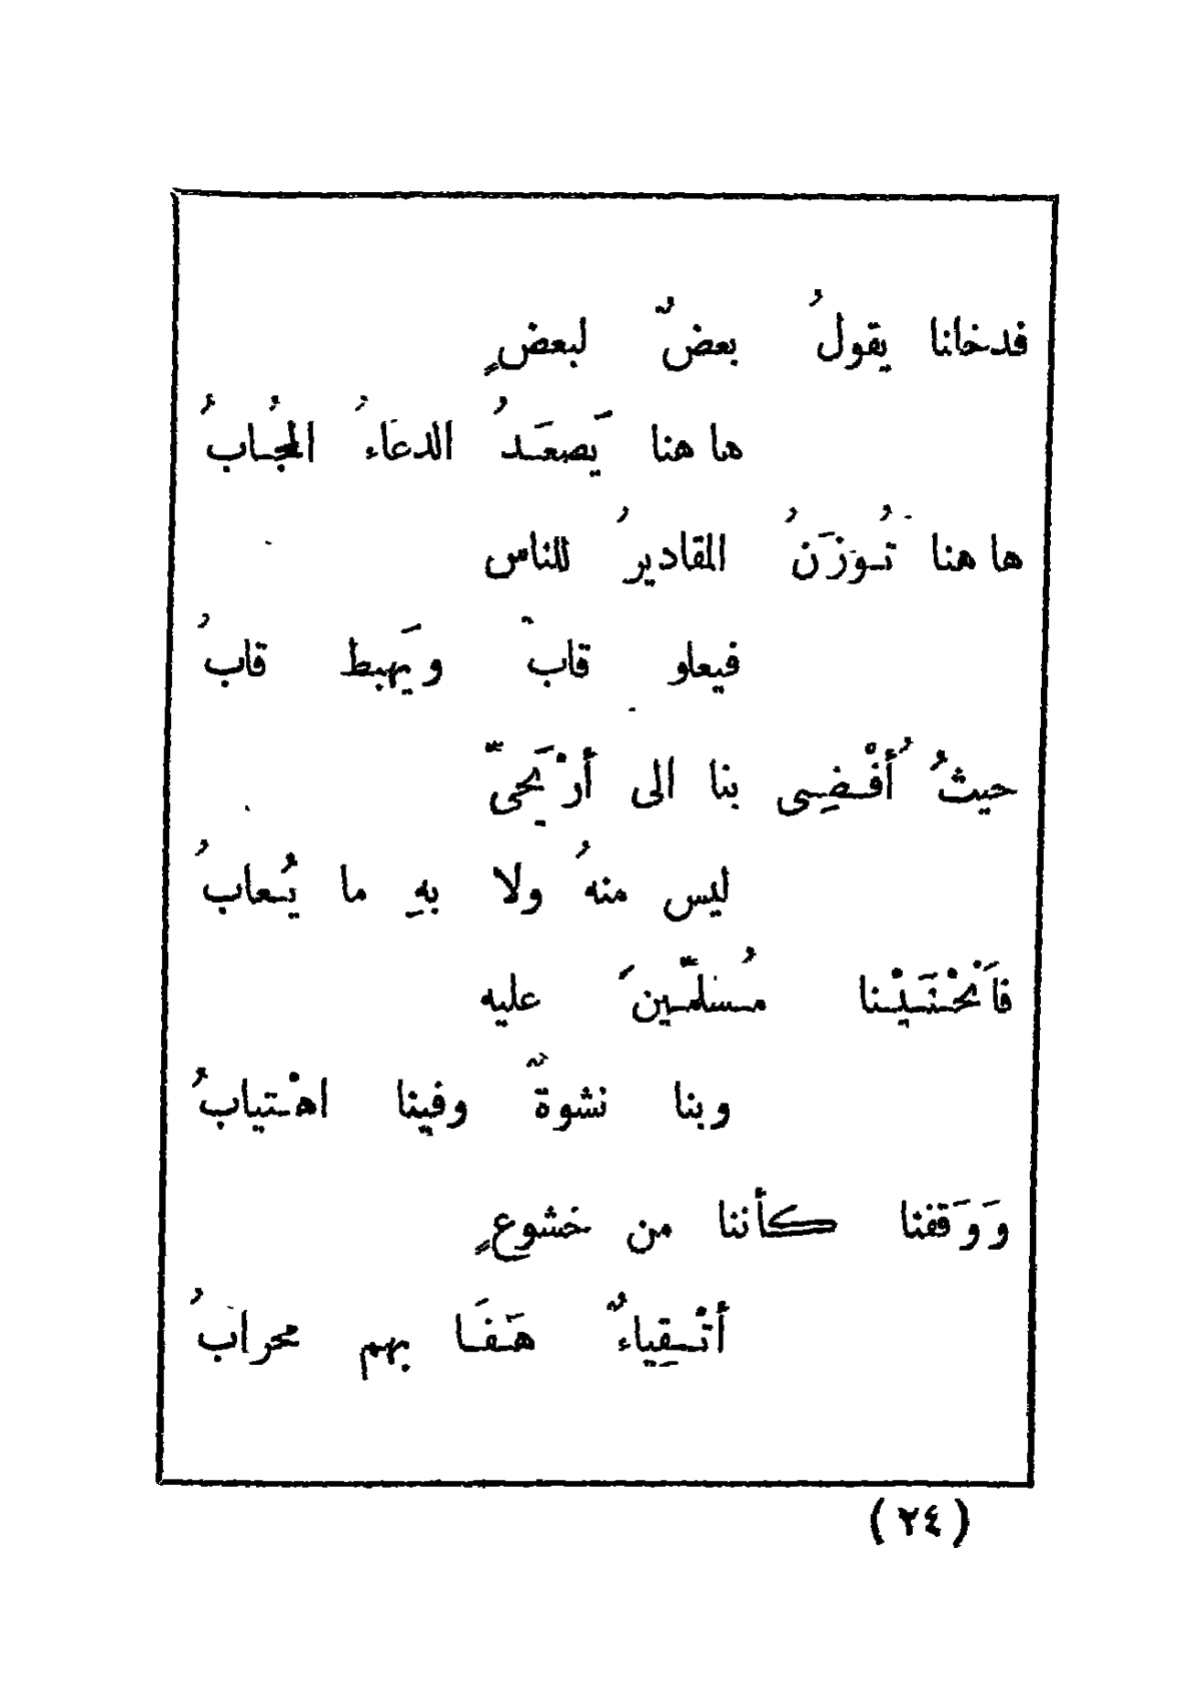 فدخلنا يقولُ بعضٌ لبعضٍ
ها هنا يَصعَدُ الدعَاءُ المجُابُ
ها هنا تُوزَنُ المقاديرُ للناس
فيعلو قابٌ ويَهبط قابُ
حيثُ أُفْضِى بنا الى أرْيَحىّ
ليس منهُ ولا بهِ ما يُعابُ
فاَنْحْنَيْنا مُسَلّمينَ عليه
وبنا نشوةٌ وفينا اهْتيابُ
وَوَقفنا كأننا من خشوعٍ
أتْقِياءٌ هَفَا بهم محرابُ
(٢٤)